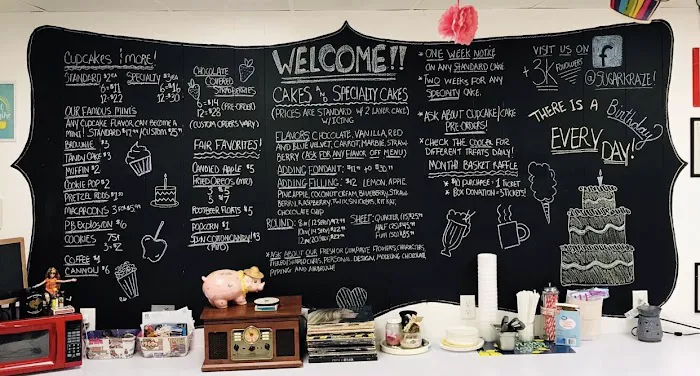 CUPCAKES & MORE!
STANDARD $2 EA SPECIALTY $3 EA
6=$11 6=$16
12=$22 12=$30
OUR FAMOUS MINIS
ANY CUPCAKE FLAVOR CAN BECOME A
MINI! STANDARD $17.99/CUSTOM $25
BROWNIE $3
TANDY CAKE $3
MUFFIN $2
COOKIE POP $2
PRETZEL RODS
MACAROONS 3 FOR $5.99
PB EXPLOSION $6
COOKIES 75¢
3-$2
COFFEE $1
CANNOLI $6
CHOCOLATE
COVERED
STRAWBERRIES
6=$14 (PRE-ORDER)
12=$28
(CUSTOM ORDERS VARY)
FAIR FAVORITES!
CANDIED APPLE $5
FRIED OREOS (MTO)
3 5
5 $7
ROOTBEER FLOATS $5
POPCORN $1
SUN COTTON CANDY $3
(MTO)
WELCOME!!
CAKES AND SPECIALTY CAKES
(PRICES ARE STANDARD W/ 2 LAYER CAKE)
W/ ICING
FLAVORS CHOCOLATE, VANILLA, RED
AND BLUE VELVET, CARROT, MARBLE, STRAW-
BERRY (ASK FOR ANY FLAVOR OFF MENU)
ADDING FONDANT: $11.99 TO $30.99
ADDING FILLING: $12 LEMON, APPLE
PINEAPPLE, COCONUT CREAM, BLUEBERRY, STRAW-
BERRY, RASPBERRY, TWIX, SNICKERS, KIT KAT,
CHOCOLATE CHIP
ROUND: SHEET:
*ASK ABOUT OUR FRESH OR GUMPASTE FLOWERS, CHARACTERS,
TIERED, SHAPED CAKES, PERSONAL DESIGN, MODELING CHOCOLATE,
PIPING AND AIRBRUSH!
* ONE WEEK NOTICE
ON ANY STANDARD CAKE
* TWO WEEKS FOR ANY
SPECIALTY CAKE.
*ASK ABOUT CUPCAKE/CAKE
PRE-ORDERS!
*CHECK THE COOLER FOR
DIFFERENT TREATS DAILY!
MONTHLY BASKET RAFFLE
* $10 PURCHASE = 1 TICKET
* BOX DONATION = 5 TICKETS!
VISIT US ON f
+3K FOLLOWERS
@SUGARKRAZE!
THERE IS A Birthday
EVERY DAY!